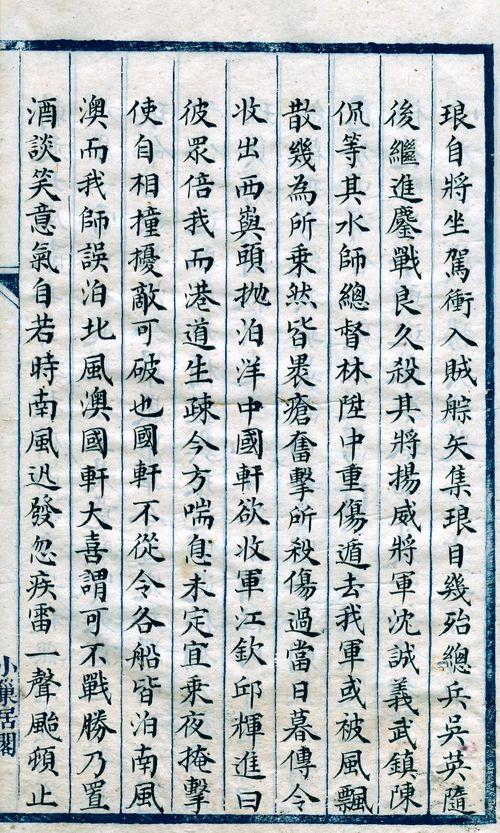 琅自將坐駕衝入賊䑸矢集琅目幾殆總兵吳英隨
後繼進鏖戰良久殺其將揚威將軍沈誠義武鎮陳
侃等其水師總督林陞中重傷遁去我軍或被風飄
散幾為所乘然皆褁瘡奮擊所殺傷過當日暮傳令
收出西嶼頭抛泊洋中國軒欲收軍江欽邱輝進曰
彼眾倍我而港道生疎今方喘息未定宜乘夜掩擊
使自相撞擾敵可破也國軒不從令各船皆泊南風
澳而我師誤泊北風澳國軒大喜謂可不戰勝乃置
酒談笑意氣自若時南風迅發忽疾雷一聲颱頓止
小巢居閣